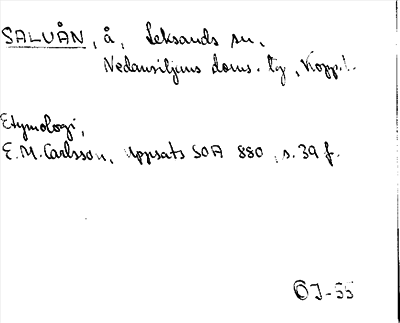 SALUÅN, å, Leksands sn,
Nedansiljans doms. tg, Kopp.l.
Etymologi,
E.M. Carlsson, Uppsats SOA 880, s. 39 f.
ÖJ-55